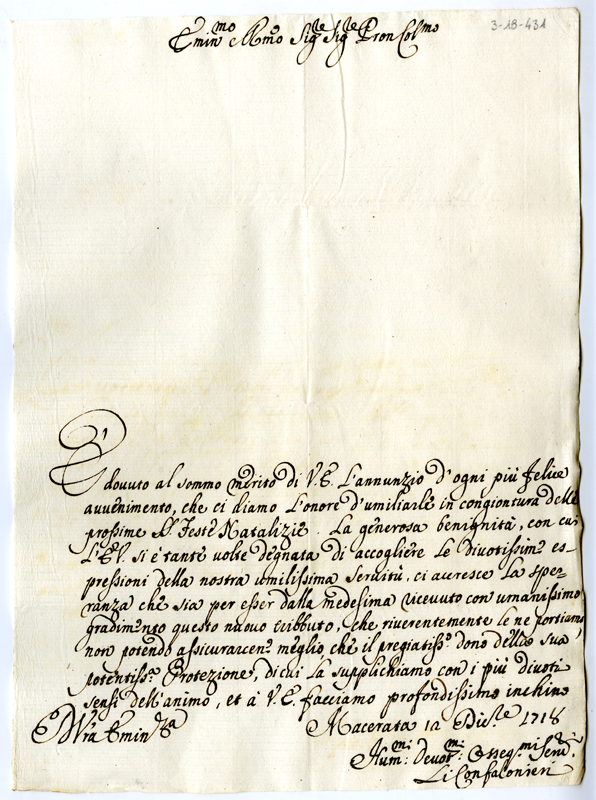 3-18-431
Emin.mo e Rmo Sig.re Sig.re Pron Col.mo
E' dovuto al sommo merito di V.E. L'annunzio d'ogni più felice
avvenimento, che ci diamo L'onore d'umiliarle in congiontura delle
prossime S.te Feste Natalizie. La generosa benignità, con cui
L'E.V. si è tante volte degnata di accogliere Le divotissime es-
pressioni della nostra umilissima servitù, ci accresce La spe-
ranza che sia per esser dalla medesima ricevuto con umanissimo
gradim.nto questo nuovo tributo, che riverentemente le ne portiamo,
non potendo assicurarcene meglio che il pregiatiss.o dono della sua
potentiss.a Protezione, di cui La supplichiamo con i più divoti
sensi dell'animo, et à V.E. facciamo profondissimo inchino
Di Vra Emin.za Macerata 12 Dic.re 1718
Hum:mi Devot:mi Osseq:mi Serv.ri
Li Confalonieri